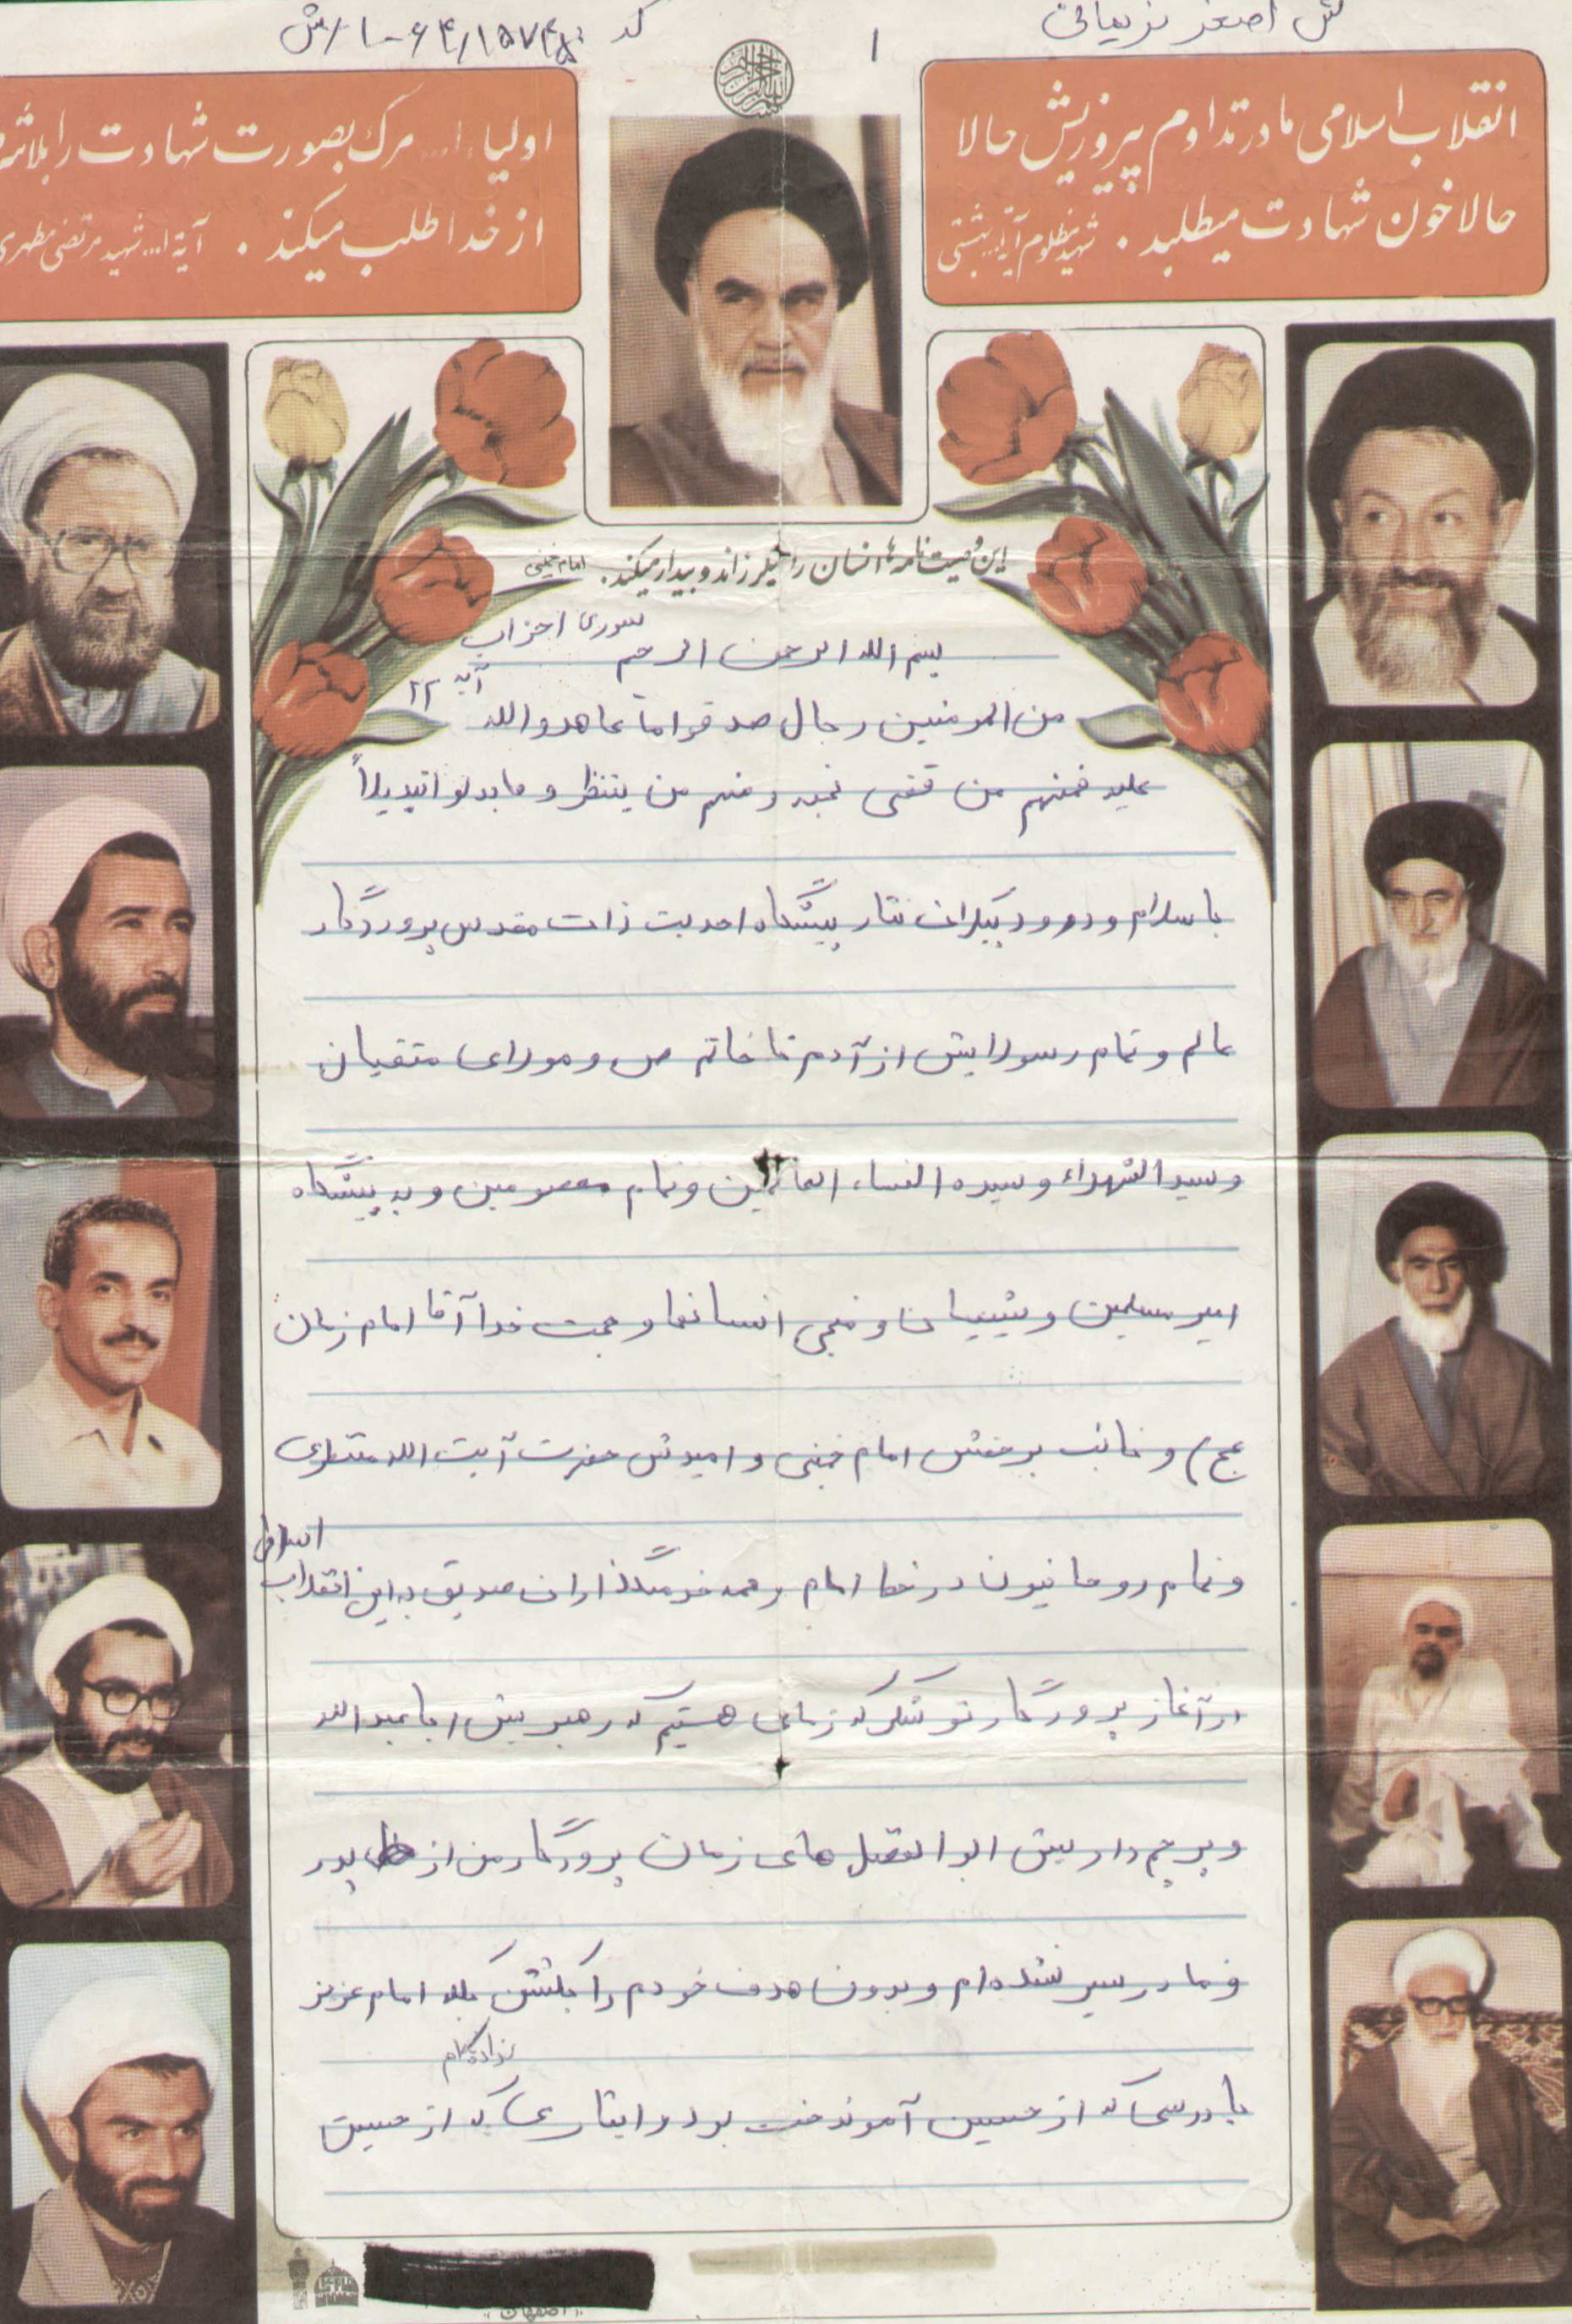 ش اصغر نریمانی
۱
کد
انقلاب اسلامی ما در تداوم پیروزیش حالا
حالا خون شهادت میطلبد . شهید مظلوم آیة... بهشتی
اولیاء ا... مرگ بصورت شهادت را
از خدا طلب میکند . آیة ا... شهید مرتضی مطهری
این وصیت نامه ها انسان را میلرزاند و بیدار میکند . امام خمینی
بسم الله الرحمن الرحیم سوری احزاب
آیه ۲۲
من المومنین رجال صدقوا ما عاهدو الله
علیه فمنهم من قضی نحبه و منهم من ینتظر و ما بدلو اتبدیلاً
با سلام و درود بیکران نثار پیشگاه احدیت ذات مقدس پروردگار
عالم و تمام رسولانش از آدم تا خاتم ص و مولای متقیان
و سید الشهداء و سیده النساء العالمین و تمام معصومین و به پیشگاه
امیر مسلمین و شیعیان و منجی انسانها و حجت خدا آقا امام زمان
عج) و نائب برحقش امام خمینی و امیدش حضرت آیت الله منتظری
و تمام روحانیون در خط امام و همه خدمتگذاران صدیق به این انقلاب
اسلامی
از آغاز پروردگار تو شکر که زمانی هستیم که رهبریش ابا عبدالله
و پرچم داریش ابوالفضل های زمان پروردگار من از پدر
و مادر سیر نشده ام و بدون هدف خودم را بکشتن بلکه امام عزیز
نداده ام
با درسی که از حسین آموخت بود و ایثاری که از حسین
اصفهان